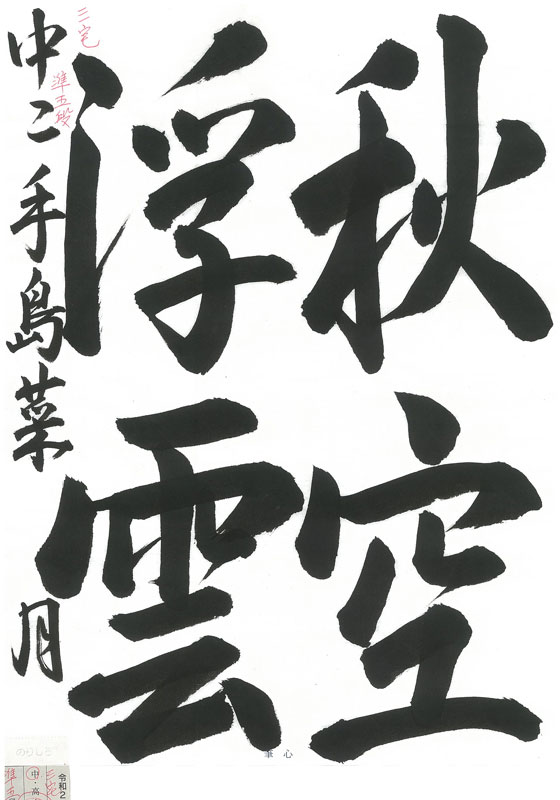 秋空
浮雲
中二 手島菜月
三宅
準五段
のりしろ
筆心
令和2
中・高
三宅
準五